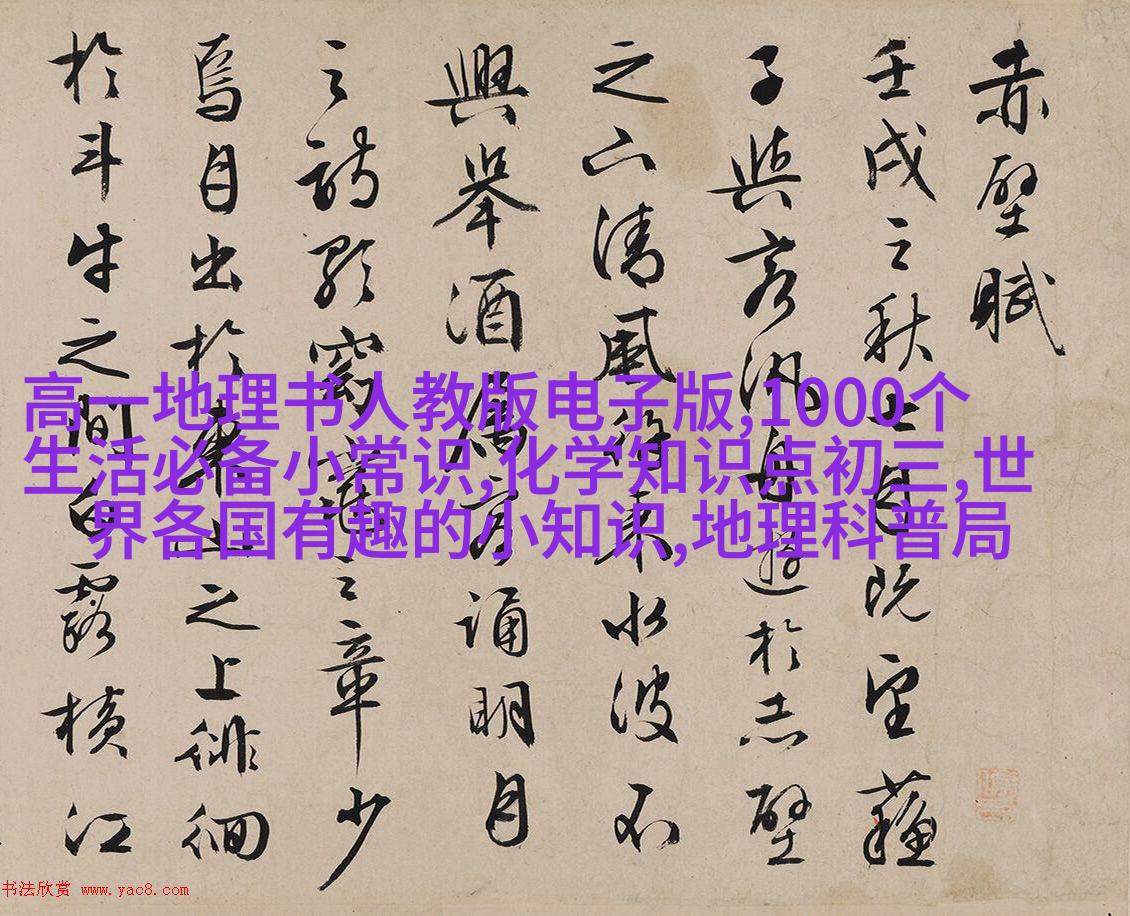 赤壁賦
壬戌之秋七月既望蘇
子與客汎舟遊於赤壁
之下清風徐來水波不
興舉酒屬客誦明月
之詩歌窈窕之章少
焉月出於東山之上徘徊
於斗牛之間白露橫江
高一地理书人教版电子版,1000个
生活必备小常识,化学知识点初三,世
界各国有趣的小知识,地理科普局
书法欣赏 www.yac8.com